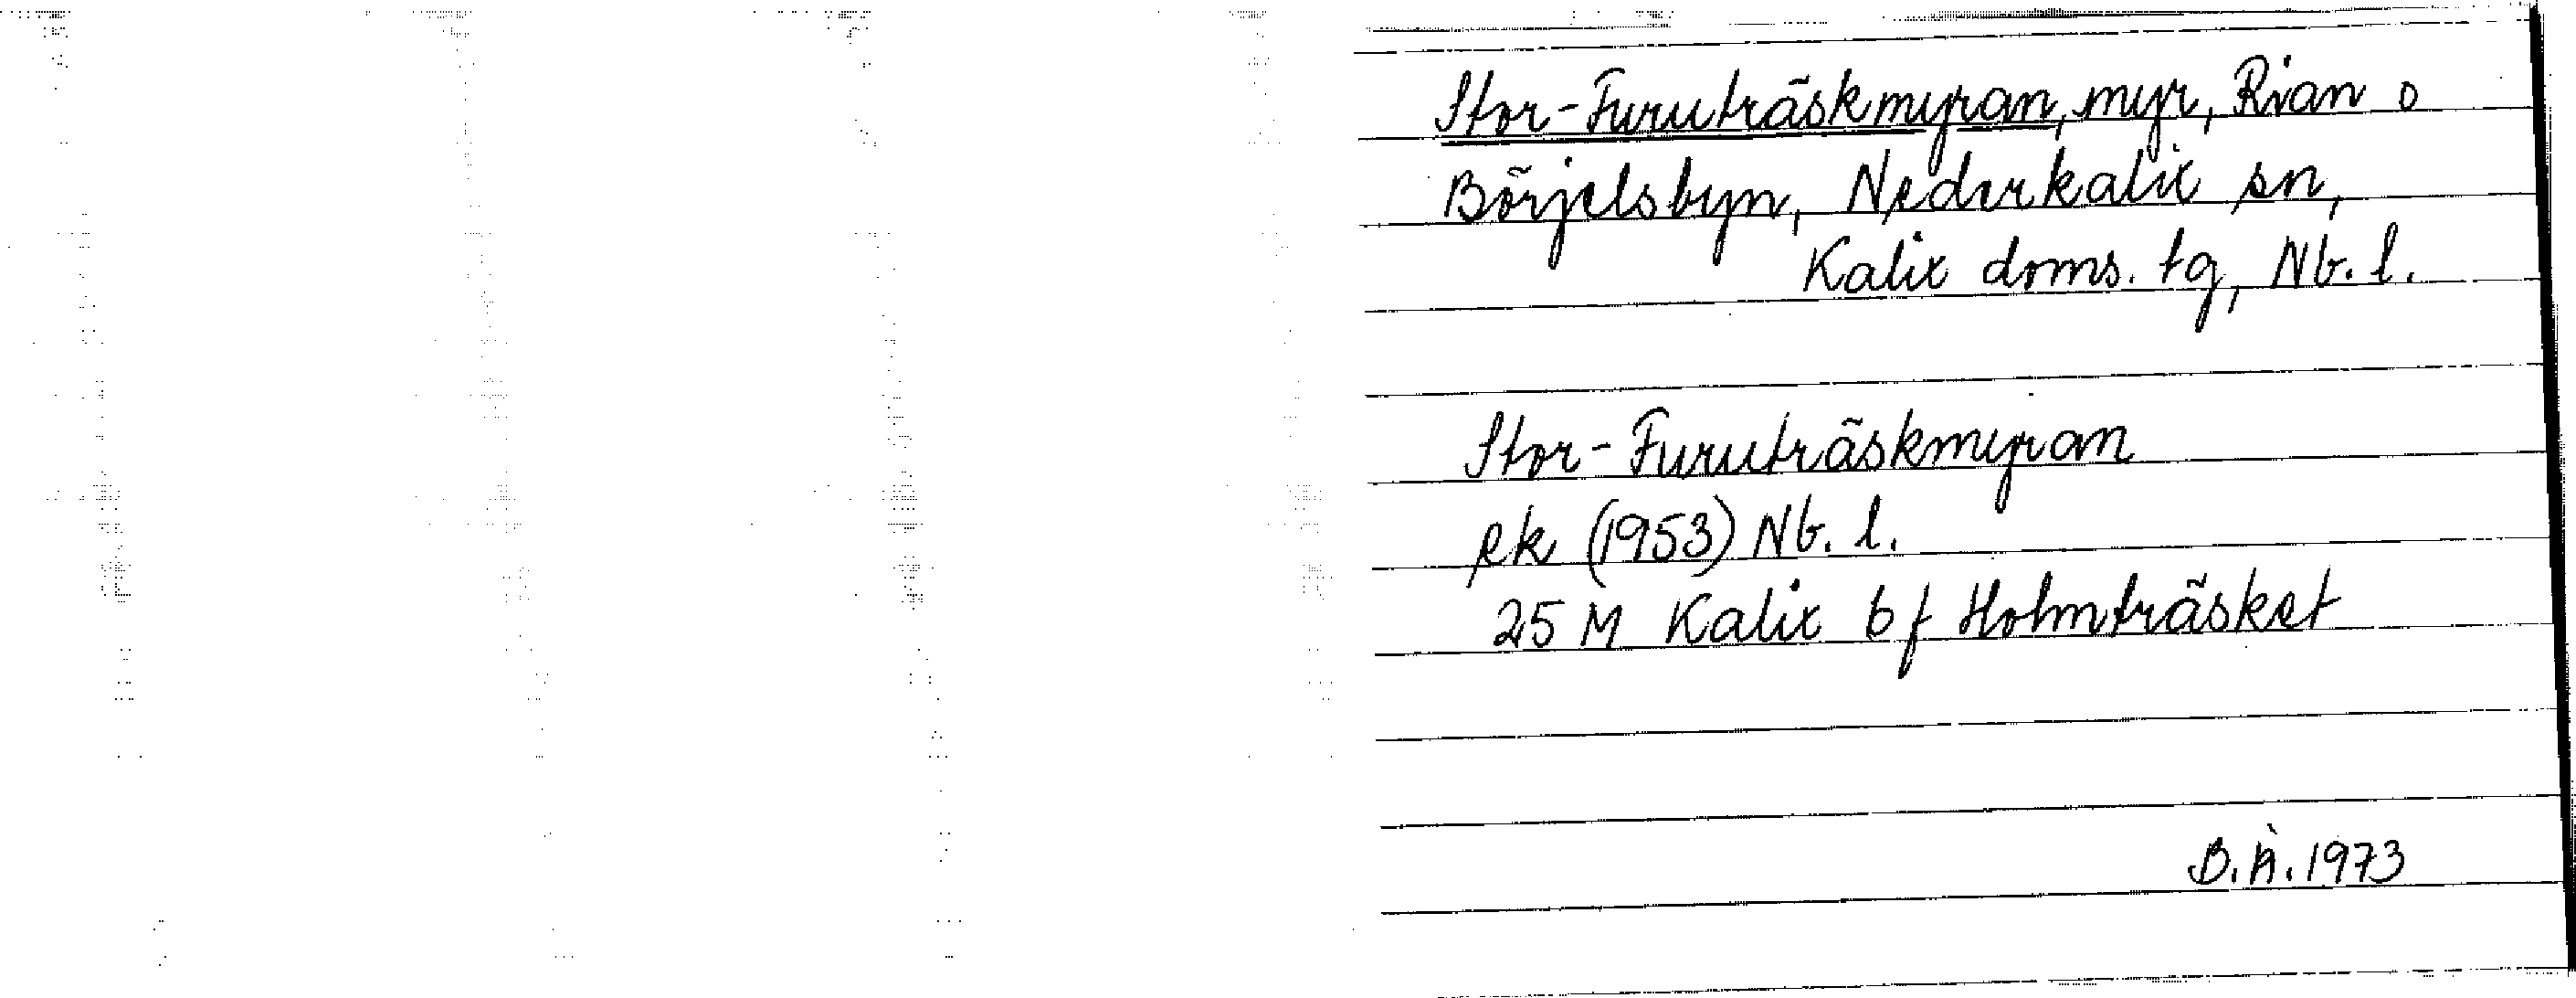 Stor-Furuträskmyran, myr, Rian o
Börjelsbyn, Nederkalix sn,
Kalix doms. tg, Nb. l.
Stor-Furuträskmyran
ek (1953) Nb. l.
25 M Kalix b f Holmträsket
B.Å. 1973